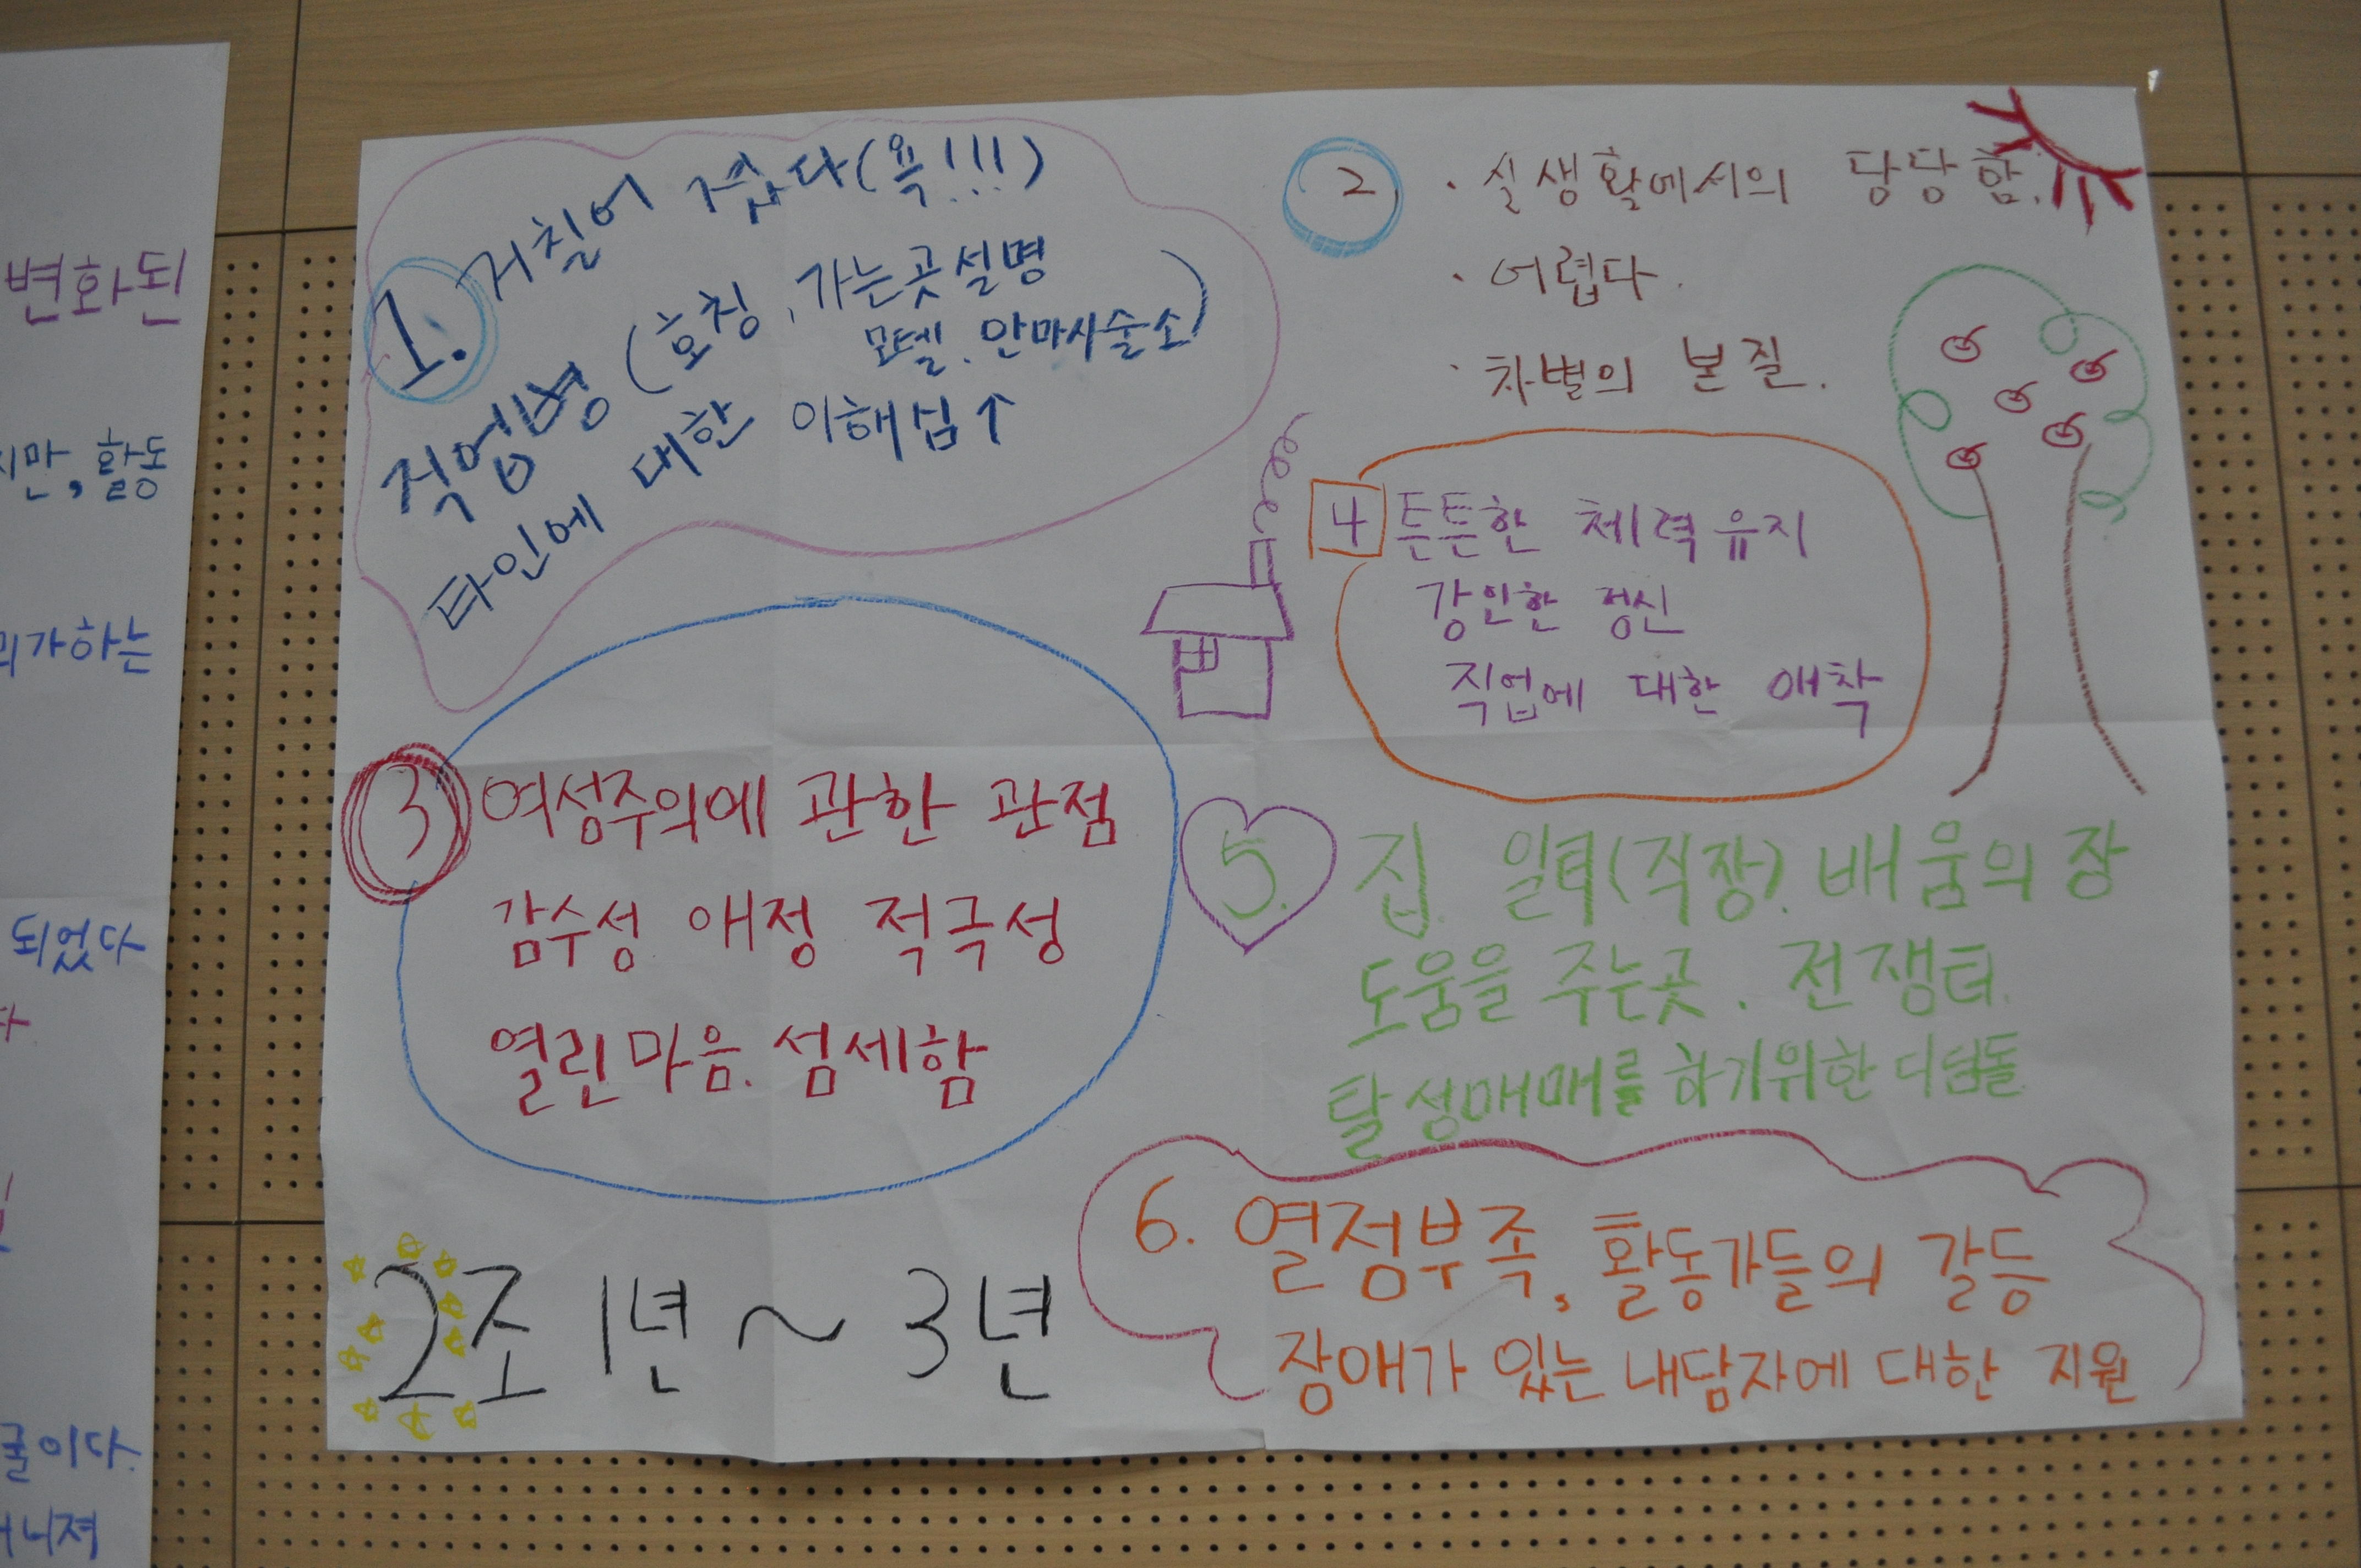 변화된
지만, 활동
리가하는
되었다
굴이다.
1. 거칠어 졌다(욕!!!)
직업병 (호칭, 가는곳설명
모텔. 안마시술소)
타인에 대한 이해심↑
2. · 실생활에서의 당당함.
· 어렵다.
· 차별의 본질.
4 튼튼한 체력유지
강인한 정신
직업에 대한 애착
3 여성주의에 관한 관점
감수성 애정 적극성
열린마음. 섬세함
5. 집. 일터(직장). 배움의 장
도움을 주는곳. 전쟁터.
탈성매매를 하기위한 디딤돌
6. 열정부족, 활동가들의 갈등
장애가 있는 내담자에 대한 지원
2조 1년 ~ 3년